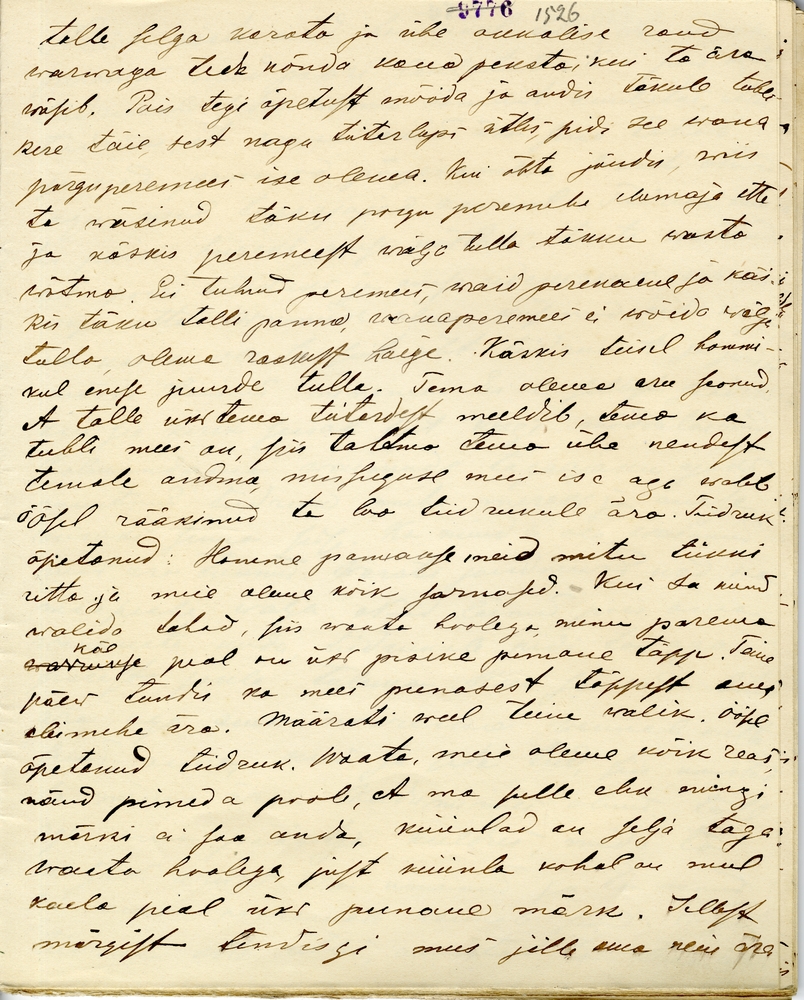 9776 1526
talle selga karata ja ühe onkalise raud
warwaga teda nõnda kaua peksta kui ta ära
wäsib. Pois tegi õpetust mööda ja andis täkule tubli
kere täie, sest nagu tüterlaps ütles, pidi see wana
põrguperemees ise olema. Kui õhto jõudis, wiis
ta wäsinud täku porgu peremehe elumaja ette
ja käskis peremeest wälja tulla täkku wasta
wõtma. Ei tulnud peremees, waid perenaene ja käs-
kis täku talli panna, wanaperemees ei wõida wälja
tulla, olema raskest haige. Käskis teisel hommi-
kul enese juurde tulla. Tema olema aru saanud,
et talle üks tema tüterdest meeldib, tema ka
tubli mees on, siis tahtma tema ühe nendest
temale andma, missuguse mees ise aga walib
öösel rääkinud ta loo tüdrukule ära. Tüdruk
õpetanud: Homme pannakse meid mitu tükki
ritta ja meie oleme kõik sarnased. Kui sa mind
walida tahad, siis waata hoolega, minu parema
käe
peal on üks pisike punane täpp. Teine
päew tundis ka mees punasest täppest oma
ära. Määrati weel teine walik. Öösel
õpetanud tüdruk. Waata, meie oleme kõik reas,
näud pimeda poole, et ma sulle ehk mingi
märki ei saa anda, küünlad on selja taga
waata hoolega, just küünla kohal on mul
kaela peal üks punane märk. Sellest
märgist tundisgi mees jälle oma neiu ära